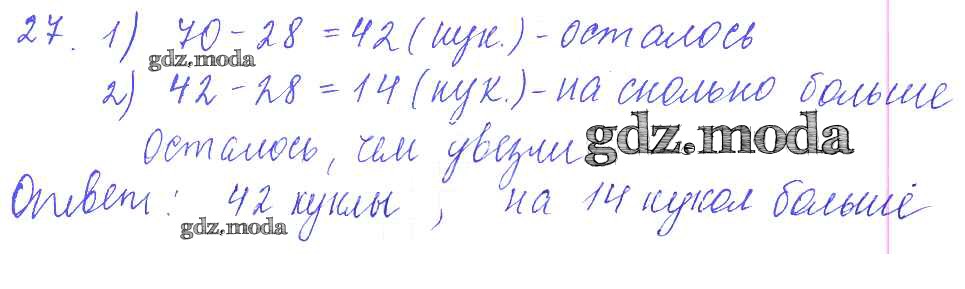 27. 1) 70 - 28 = 42 (кук.) - осталось
gdz.moda
2) 42 - 28 = 14 (кук.) - на сколько больше
осталось, чем увезли
gdz.moda
Ответ: 42 куклы, на 14 кукол больше
gdz.moda